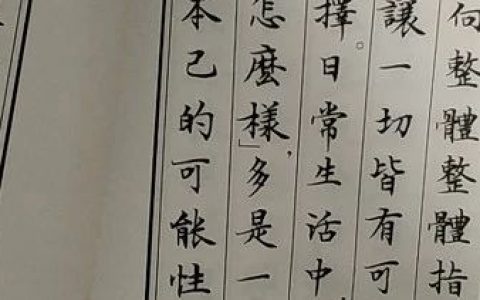 向整體整體指
讓一切皆有可
擇。日常生活中
怎麼樣」,多是一
本己的可能性